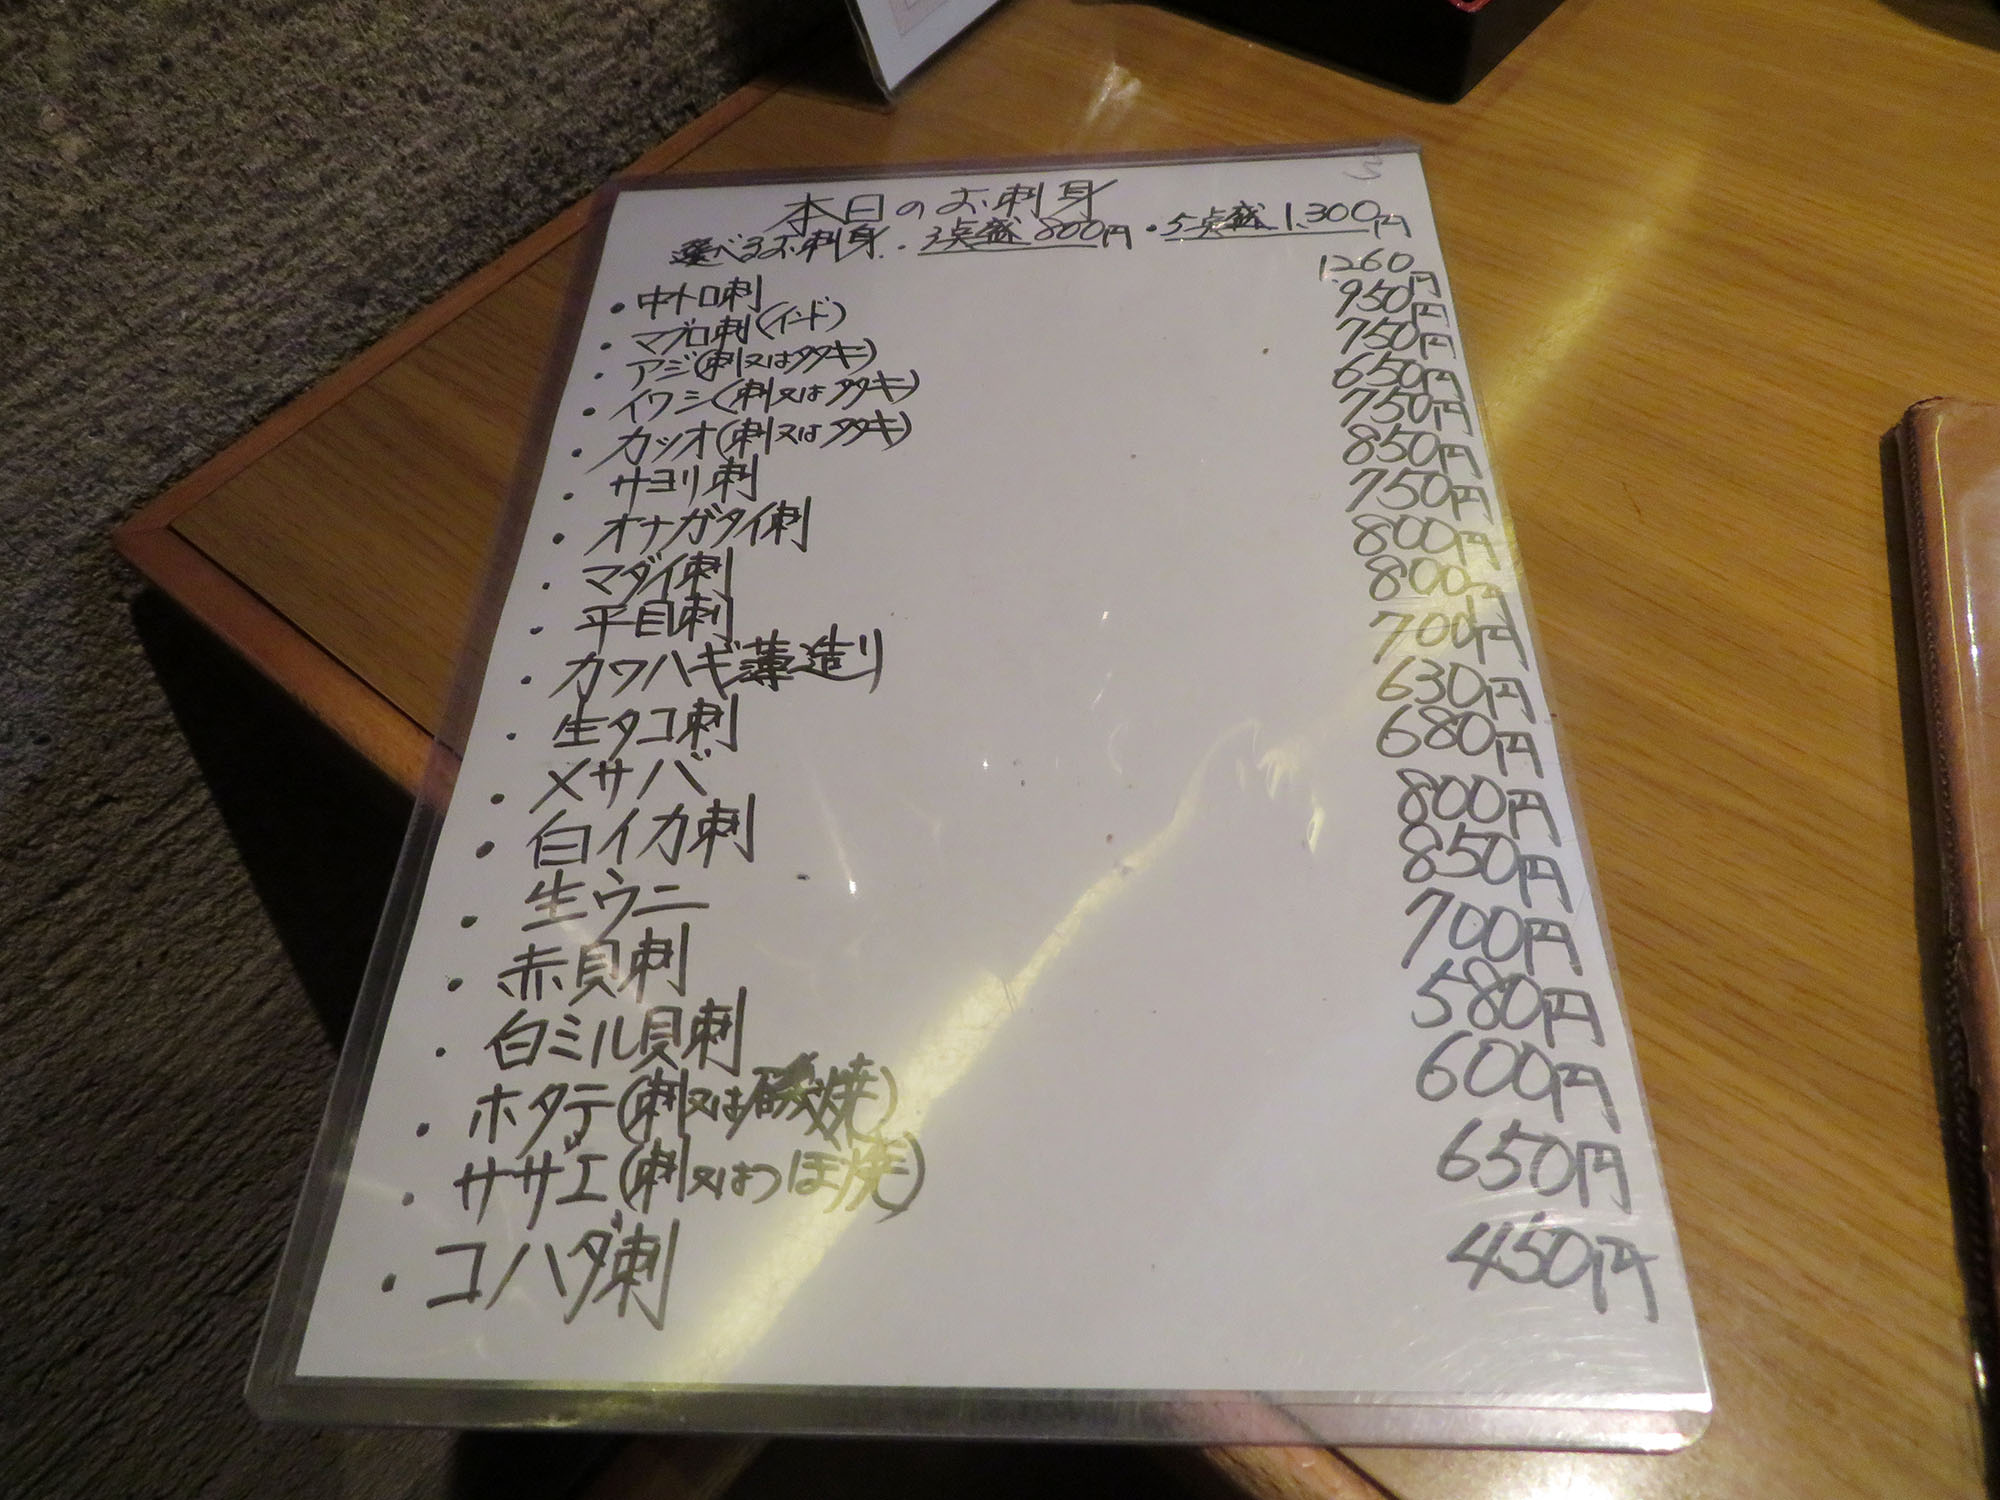 本日のお刺身
選べるお刺身・3点盛 800円・5点盛 1,300円
・中トロ刺 1260円
・マグロ刺(インド) 950円
・アジ(刺又はタタキ) 750円
・イワシ(刺又はタタキ) 650円
・カツオ(刺又はタタキ) 750円
・サヨリ刺 850円
・オナガタイ刺 750円
・マダイ刺 800円
・平目刺 800円
・カワハギ薄造り 700円
・生タコ刺 630円
・〆サバ 680円
・白イカ刺 800円
・生ウニ 850円
・赤貝刺 700円
・白ミル貝刺 580円
・ホタテ(刺又は磯焼) 600円
・サザエ(刺又はつぼ焼) 650円
・コハダ刺 450円